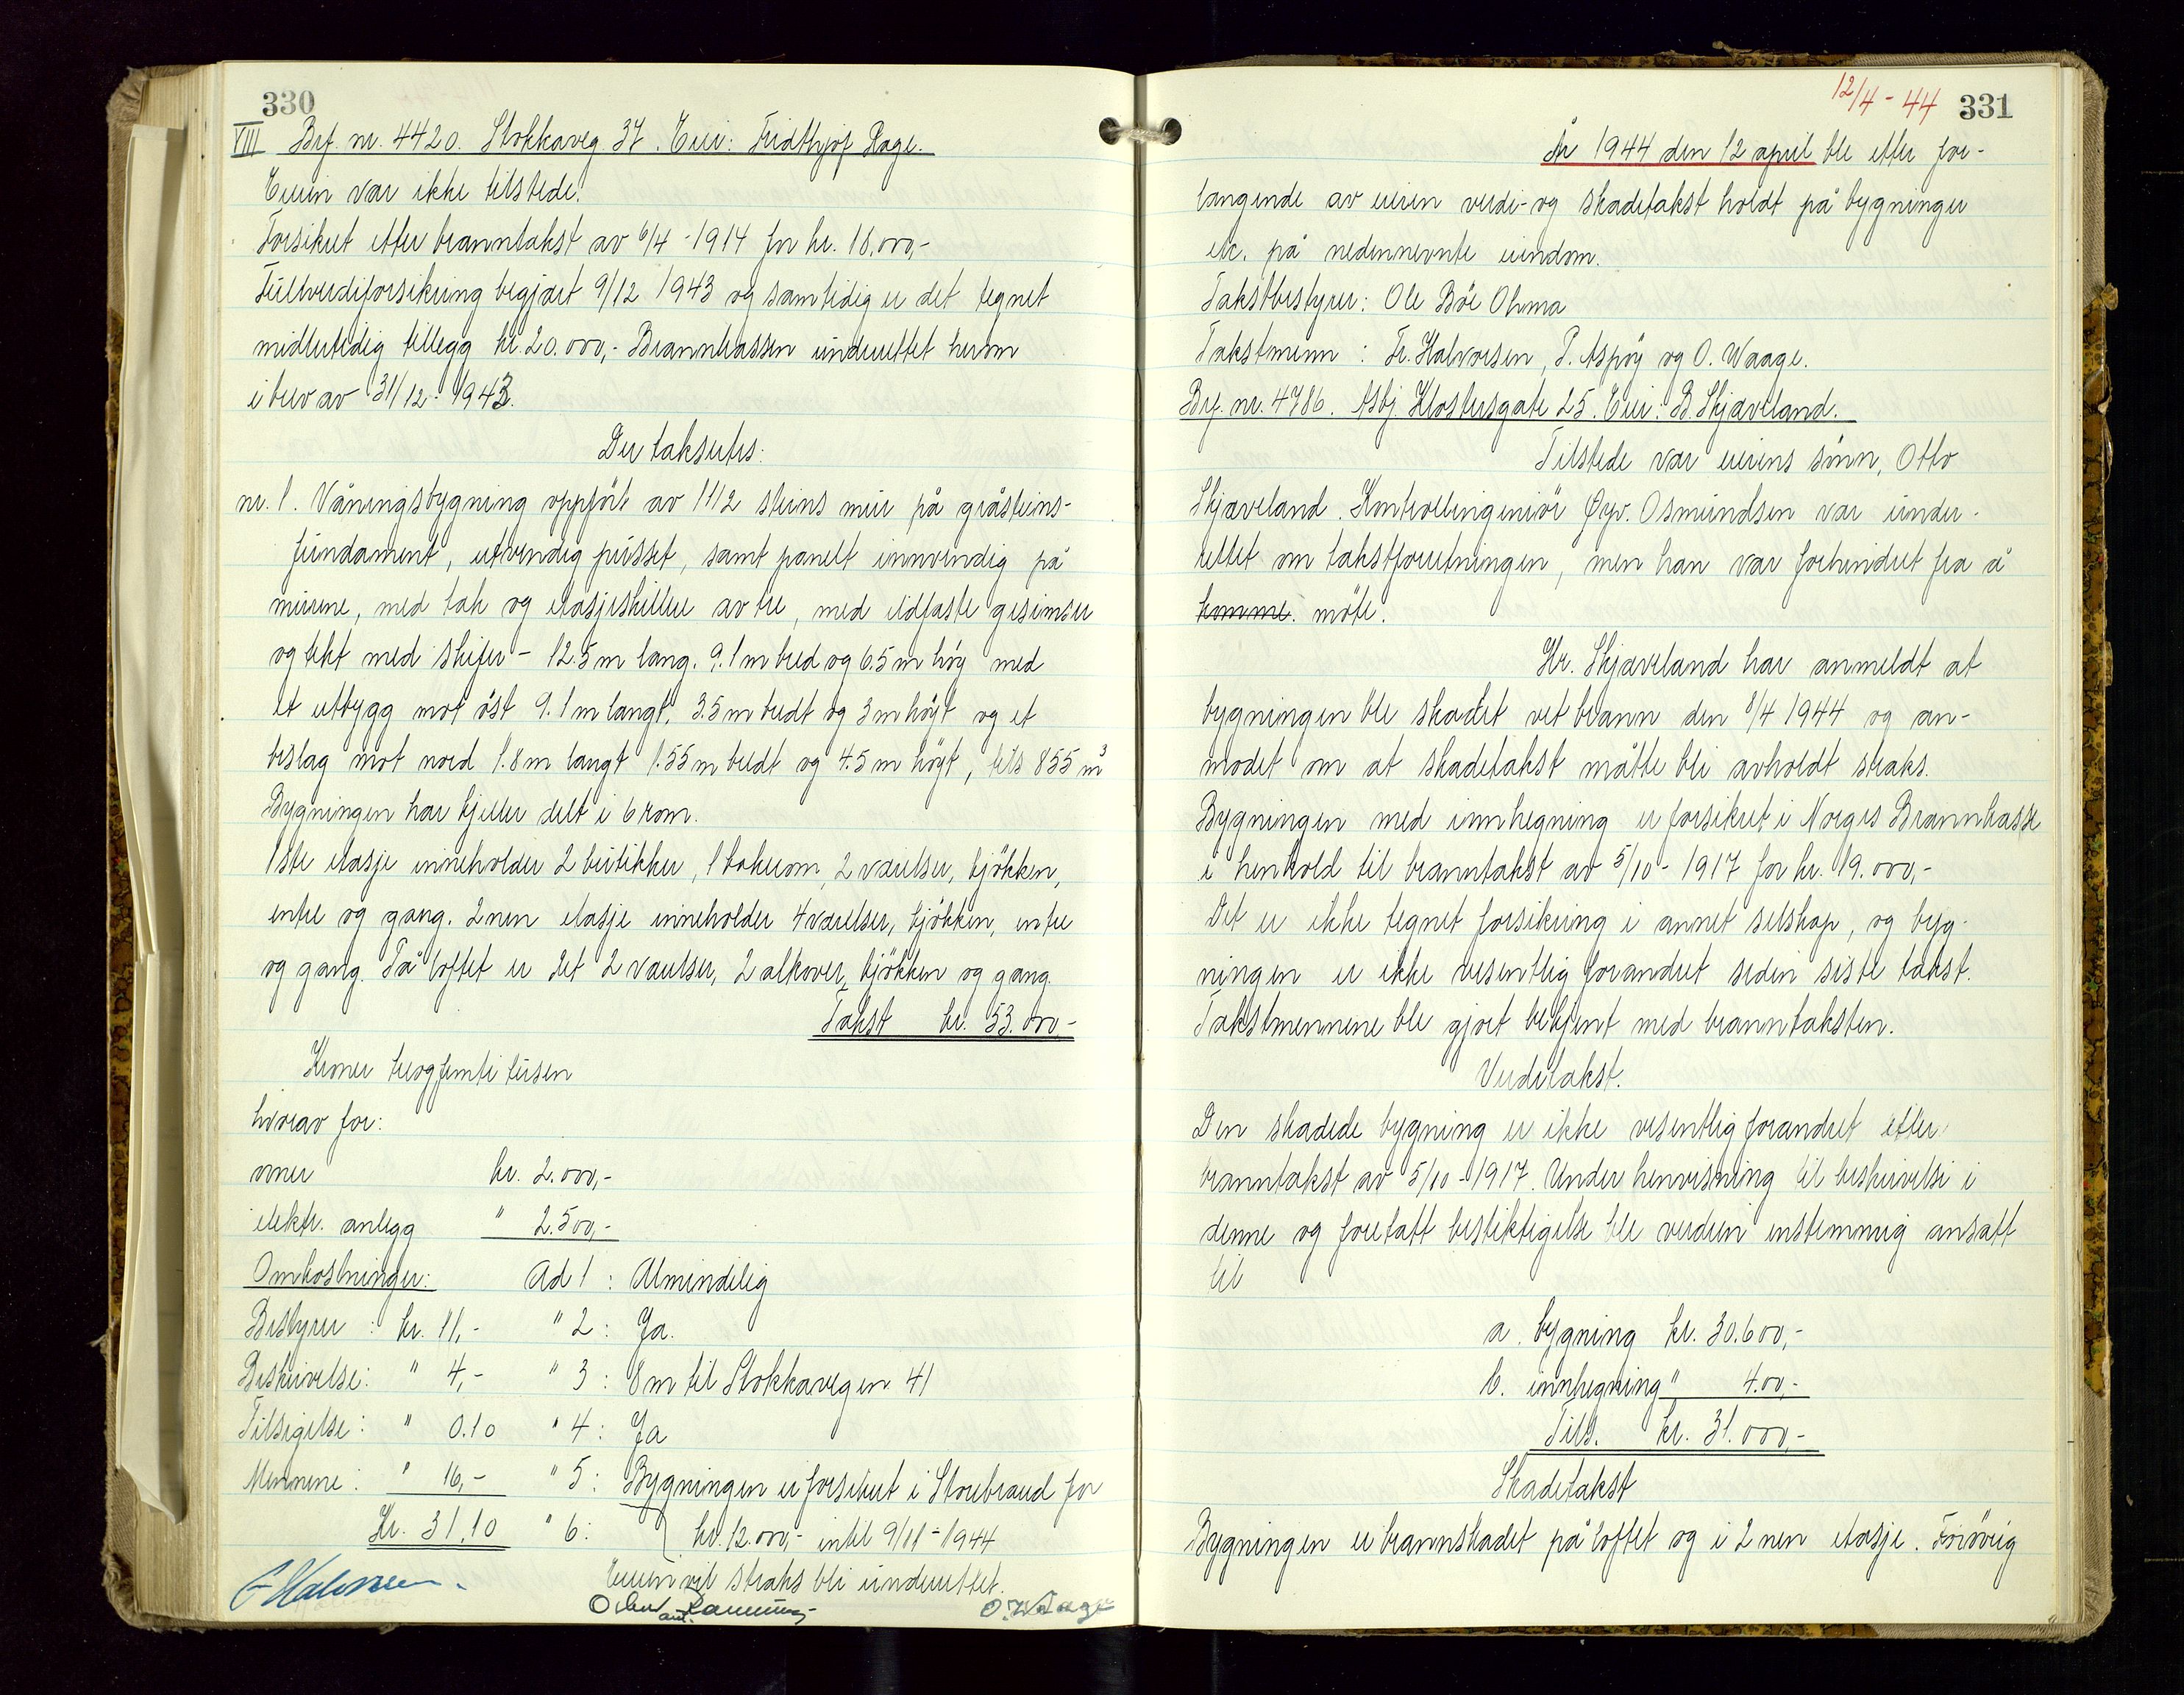 330
VIII Brf. nr. 4420. Stokkaveg. 37. Eier: Fridthjof Hage.
Eieren var ikke tilstede.
Forsikret etter branntakst av 6/4 - 1914 for kr. 18.000,-
Fullverdiforsikring begjært 9/12 1943 og samtidig er det tegnet
midlertidig tillegg kr. 20.000,- Brannkassen underrettet herom
i brev av 31/12 - 1943.
Der takseres:
nr. 1. Våningsbygning oppført av 1 1/2 steins mur på gråsteins-
fundament, utvendig pusset, samt panelt innvendig på
murene, med tak og etasjeskiller av tre, med ildfaste gesimser
og tekt med skifer - 12.5 m lang. 9.1 m bred og 6.5 m høy med
et utbygg mot øst 9.1 m langt, 3.5 m bredt og 3 m høyt og et
beslag mot nord 1.8 m langt 1.55 m bredt og 4.5 m høyt, tils 855 m³
Bygningen har kjeller delt i 6 rom.
1ste etasje inneholder 2 butikker, 1 bakerom, 2 værelser, kjøkken,
entre og gang. 2nen etasje inneholder 4 værelser, kjøkken, entre
og gang. På loftet er det 2 værelser, 2 alkover, kjøkken og gang.
Takst kr. 53.000,-
Kroner treogfemti tusen
hvorav for:
ovner kr. 2.000,-
elektr. anlegg " 2.500,-
Omkostninger: Ad 1 : Almindelig
Bestyrer : kr. 11,- " 2 : Ja.
Beskrivelse: " 4,- " 3 : 8 m til Stokkavegen 41
Tilsigelse: " 0.10 " 4 : Ja
Mennene : " 16,- " 5 : Bygningen er forsikret i Storebrand for
Kr. 31.10 " 6 : kr. 12.000,- inntil 9/11 - 1944
Eieren vil straks bli underrettet.
Halvorsen O. Waage
12/4 - 44 331
År 1944 den 12 april ble etter for-
langende av eieren verdi- og skadetakst holdt på bygninger
etc. på nedennevnte eiendom.
Takstbestyrer: Ole Bøe Ohma
Takstmenn : Fr. Halvorsen, P. Aspøy og O. Waage.
Brf. nr. 4786. Asbj. Klostersgate 25. Eier: B. Skjæveland.
Tilstede var eierens sønn, Otto
Skjæveland. Kontrollingeniør Øyv. Osmundsen var under-
rettet om takstforretningen, men han var forhindret fra å
komme. møte.
Hr. Skjæveland har anmeldt at
bygningen ble skadet vet brann den 8/4 1944 og an-
modet om at skadetakst måtte bli avholdt straks.
Bygningen med innhegning er forsikret i Norges Brannkasse
i henhold til branntakst av 5/10 - 1917 for kr. 19.000,-
Det er ikke tegnet forsikring i annet selskap, og byg-
ningen er ikke vesentlig forandret siden siste takst.
Takstmennene ble gjort bekjent med branntaksten.
Verditakst.
Den skadede bygning er ikke vesentlig forandret etter
branntakst av 5/10 - 1917. Under henvisning til beskrivelse i
denne og foretatt besiktigelse ble verdien enstemmig ansatt
til
a. bygning kr. 30.600,-
b. innhegning " 400,-
Tils. kr. 31.000,-
Skadetakst
Bygningen er brannskadet på loftet og i 2nen etasje. Forøvrig